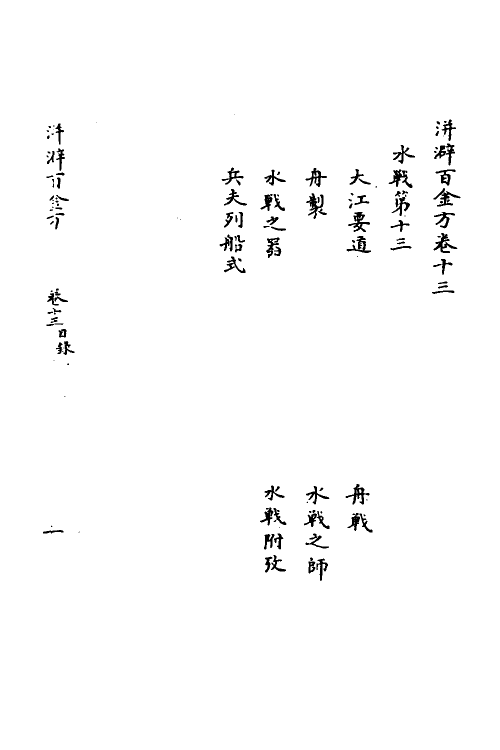 洴澼百金方卷十三
水戰第十三
大江要道
舟戰
舟製
水戰之師
水戰之器
水戰附攷
兵夫列船式
洴澼百金方
卷十三目錄
一